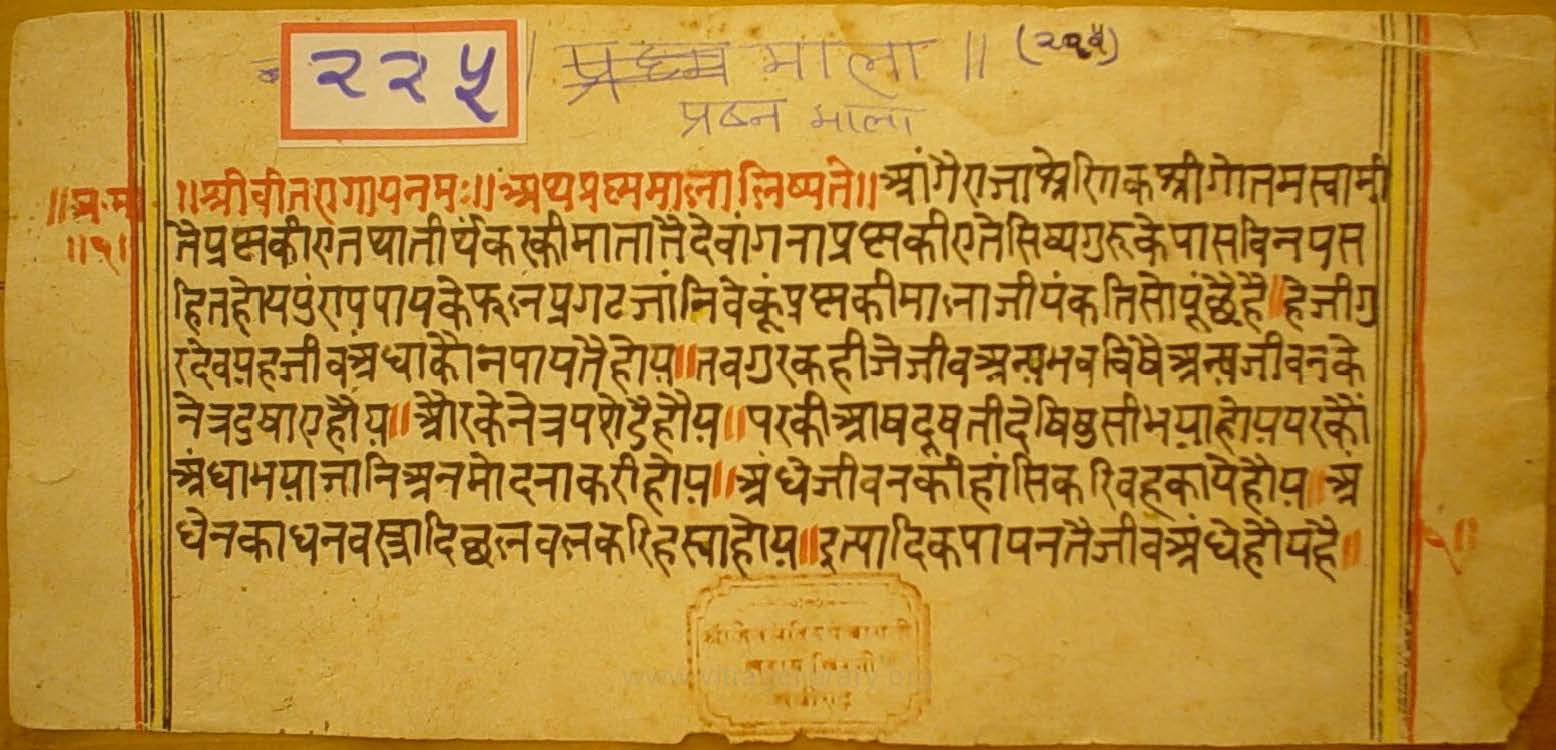 २२५ प्रष्न माला ॥ (२२५)
प्रष्न माला
॥श्रीवीतरागायनमः॥ अथप्रष्नमालालिष्यते॥ आंगैराजाश्रेणिकश्रीगोतमस्वामी
॥प्र॰मा
तैप्रष्नकीएतथातीर्थंकरकीमातातैदेवांगनाप्रष्नकीएतेसिष्यगुरूकेपासविनयस
॥१॥
हितहोयपुंएपपापकेफलप्रगटजांनिवेकूंप्रष्नकीमालाजीयंकतिसोपूंछैहै॥हेजीगु
रदेवयहजीवअंधाकौनपापतैहोय॥तवगुरकहीजेजीवअन्यभवविषैअन्यजीवनके
नेत्रदुषाएहौय॥ औरकेनेत्रफोडैहौय॥ परकीआषदूषतीदेषिषुसीभयाहोयपरकौं
अंधाभयाजानिअनमोदनाकरीहोय॥ अंधेजीवनकीहांसिकरिवहकायेहौय॥ अं
धेनकाधनवस्त्रादिछलवलकरिहस्याहोय॥ इत्यादिकपापनतैजीवअंधेहौयहै॥
www.vitragvlibrary.org